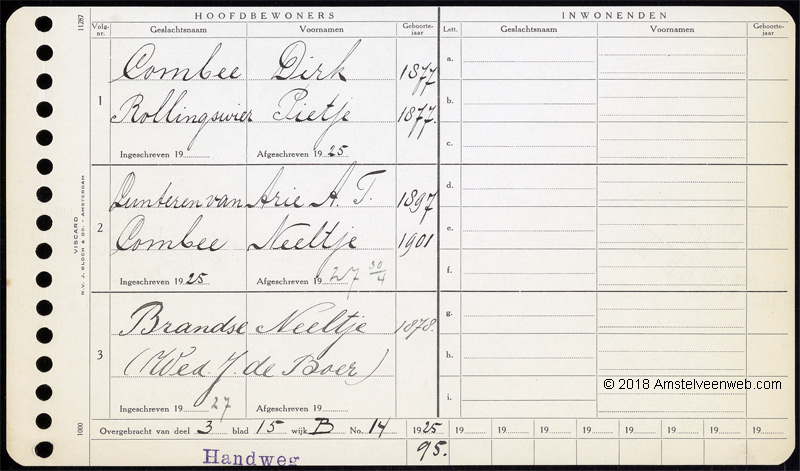 HOOFDBEWONERS INWONENDEN
Volg-nr. Geslachtsnaam Voornamen Geboorte-jaar Lett. Geslachtsnaam Voornamen Geboorte-jaar
11287
1
Combee Dirk 1877
Rollingswier Pietje 1877.
Ingeschreven 19 Afgeschreven 1925
2
Lunteren van Arie A. T. 1897
Combee Neeltje 1901
Ingeschreven 1925 Afgeschreven 1927 30/4
3
Brandse Neeltje 1878.
(Wed. J. de Boer)
Ingeschreven 19 27 Afgeschreven 19
a.
b.
c.
d.
e.
f.
g.
h.
i.
VISCARD
N.V. J. BLOCH & Co. - AMSTERDAM
1000
Overgebracht van deel 3 blad 15 wijk B No. 14 1925 19 19 19 19 19 19 19 19
95.
Handweg
© 2018 Amstelveenweb.com